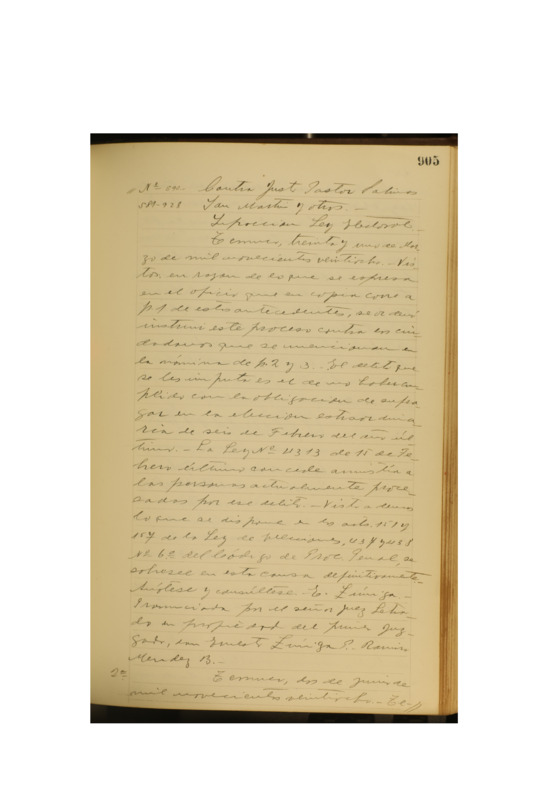 905
Nº Contra Just Pastor Salinas
588-928 San Martin y otros.-
Infraccion Ley Electoral.-
Temuco, treinta y uno de Mar-
zo de mil novecientos veintiocho.- Vis-
tos: en razon de lo que se expresa
en el oficio que en copia corre a
f 1 de estos antecedentes, se ordenó
instruir este proceso contra los ciu-
dadanos que se mencionan en
la nómina de f. 2 y 3.- El delito que
se les imputa es el de no haber cum-
plido con la obligacion de sufra-
gar en la eleccion estraordina-
ria de seis de Febrero del año úl
timo.- La Ley Nº 4313 de 15 de Fe-
brero último concede amnistía a
las personas actualmente proce-
sadas por ese delito.- Visto además
lo que se dispone en los arts. 151 y
157 de la Ley de Elecciones, 434 y 438
Nº 6º del Código de Proc. Penal, se
sobresee en esta causa definitivamente.-
Anótese y consúltese. E. Zúñiga -
Pronunciada por el señor Juez Letra-
do en propiedad del primer Juz-
gado, don Ernesto Zúñiga P. Ramiro
Mendez B.-
2º Temuco, dos de Junio de
mil novecientos veintiocho.-